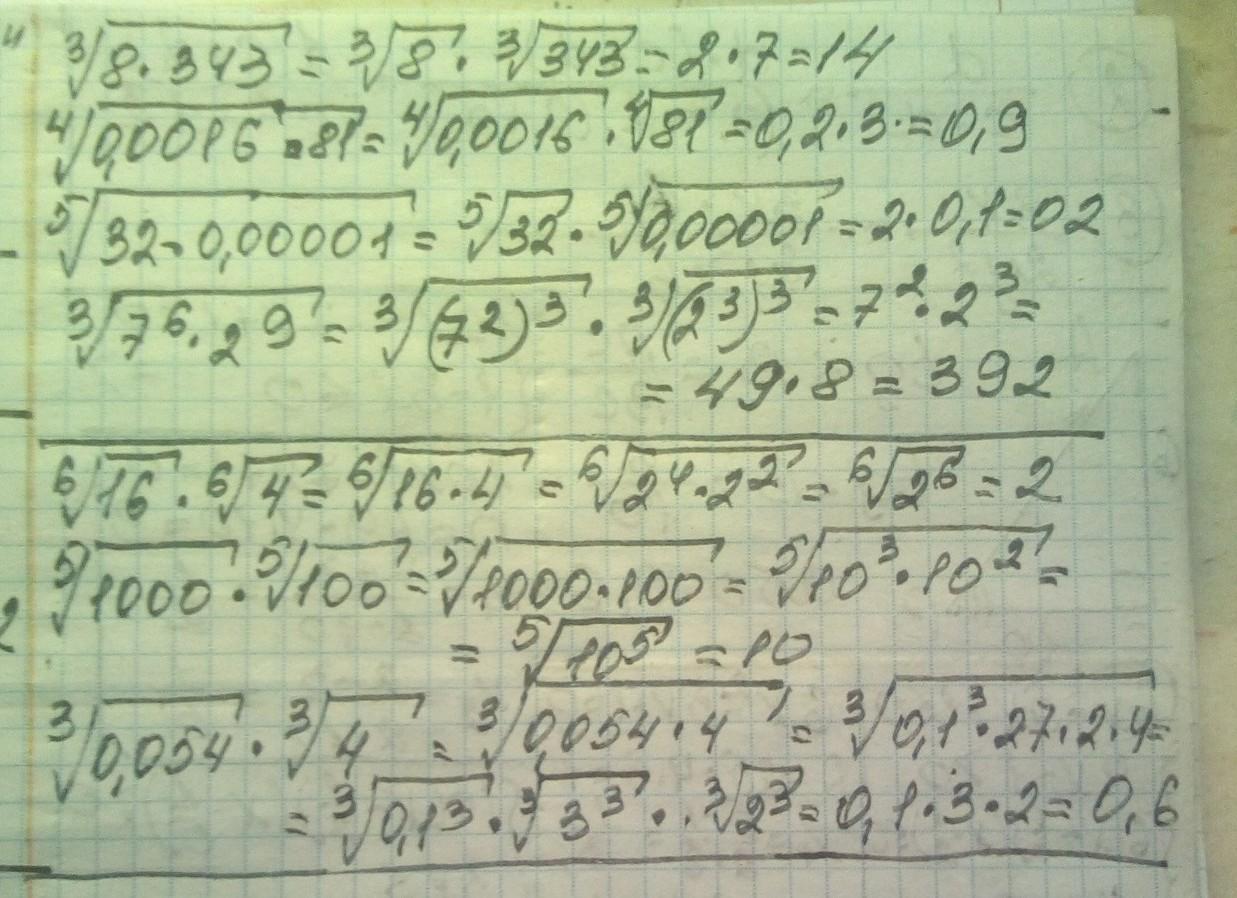 ∛(8·343) = ∛8 · ∛343 = 2·7=14
∜(0,0016·81) = ∜0,0016 · ∜81 = 0,2·3·=0,9
⁵√(32·0,00001) = ⁵√32 · ⁵√0,00001 = 2·0,1=02
∛(7⁶·2⁹) = ∛(7²)³ · ∛(2³)³ = 7²·2³=
= 49·8 = 392
⁶√16 · ⁶√4 = ⁶√(16·4) = ⁶√(2⁴·2²) = ⁶√2⁶ = 2
⁵√1000 · ⁵√100 = ⁵√(1000·100) = ⁵√(10³·10²) =
= ⁵√10⁵ = 10
∛0,054 · ∛4 = ∛(0,054·4) = ∛(0,1³·27·2·4) =
= ∛0,1³ · ∛3³ · · ∛2³ = 0,1·3·2=0,6